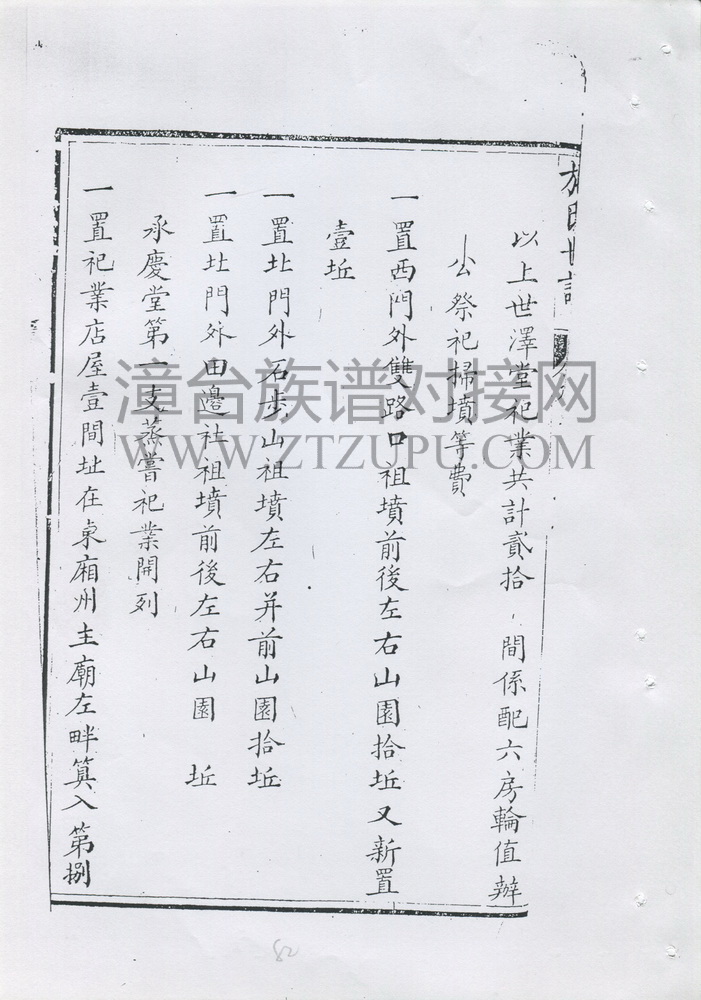 以上世澤堂祀業共計貳拾 間係配六房輪值辦
公祭祀掃墳等費
一置西門外雙路口祖墳前後左右山園拾坵又新置
壹坵
一置北門外石步山祖墳左右并前山園拾坵
一置北門外田邊社祖墳前後左右山園 坵
承慶堂第一支蒸嘗祀業開列
一置祀業店屋壹間址在東廂州主廟左畔算入第捌
漳台族谱对接网
WWW.ZTZUPU.COM
82